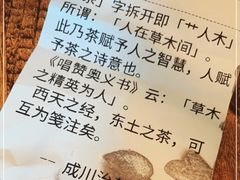 」字拆开即「艹人木」
所谓：「人在草木间」。
此乃茶赋予人之智慧，人赋
予茶之诗意也。
《唱赞奥义书》云：「草木
之精英为人」。
西天之经，东土之茶，可
互为笺注矣。
-- 成川治